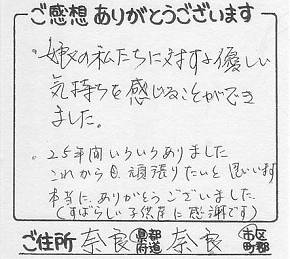 ご感想ありがとうございます
・娘の私たちに対する優しい
気持ちを感じることができ
ました。
・25年間いろいろありました
これからも頑張りたいと思います
本当にありがとうございました
(すばらしい子供達に感謝です)
ご住所 奈良 都道府県 奈良 市区町郡